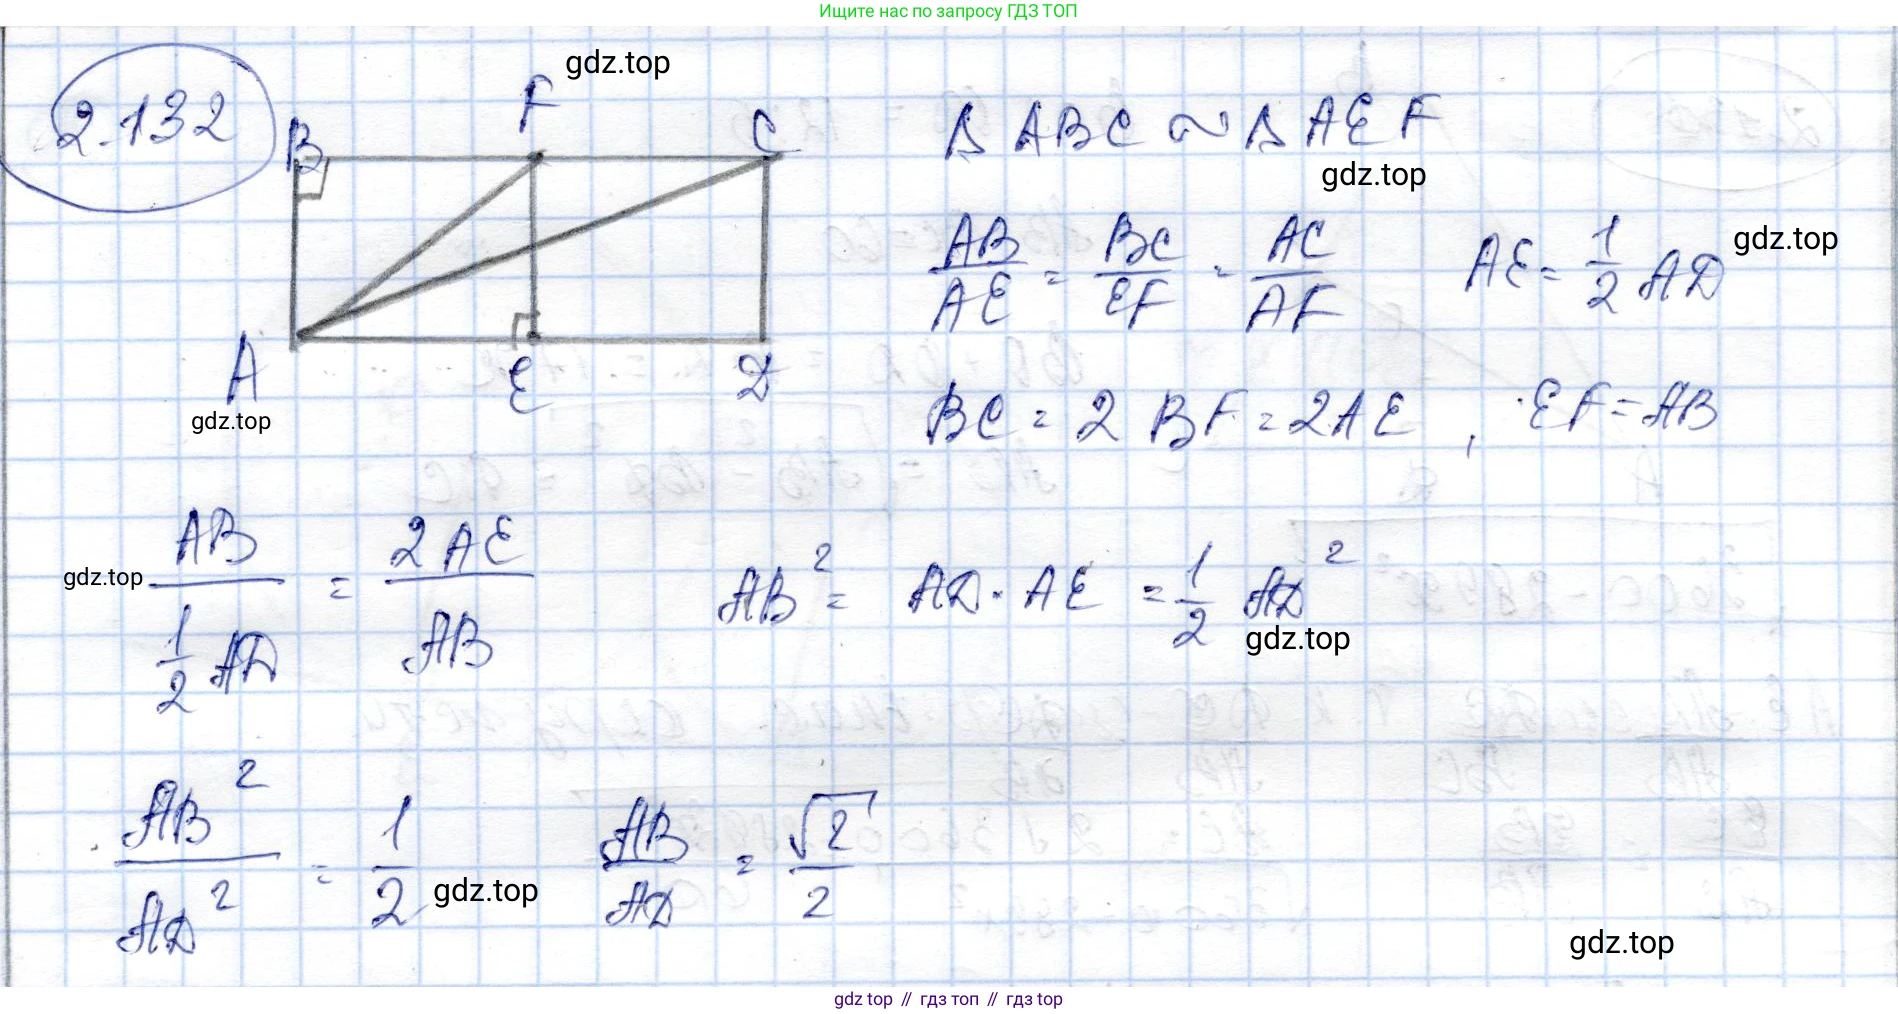 Ищите нас по запросу ГДЗ ТОП
gdz.top
2.132
B F C
A E D
gdz.top
Δ ABC ∾ Δ AEF
gdz.top
AB/AE = BC/EF = AC/AF AE = 1/2 AD
gdz.top
BC = 2 BF = 2AE , EF = AB
gdz.top
AB / 1/2 AD = 2AE / AB AB² = AD · AE = 1/2 AD²
gdz.top
AB²/AD² = 1/2 AB/AD = √2/2
gdz.top
gdz.top
gdz top // гдз топ // гдз top